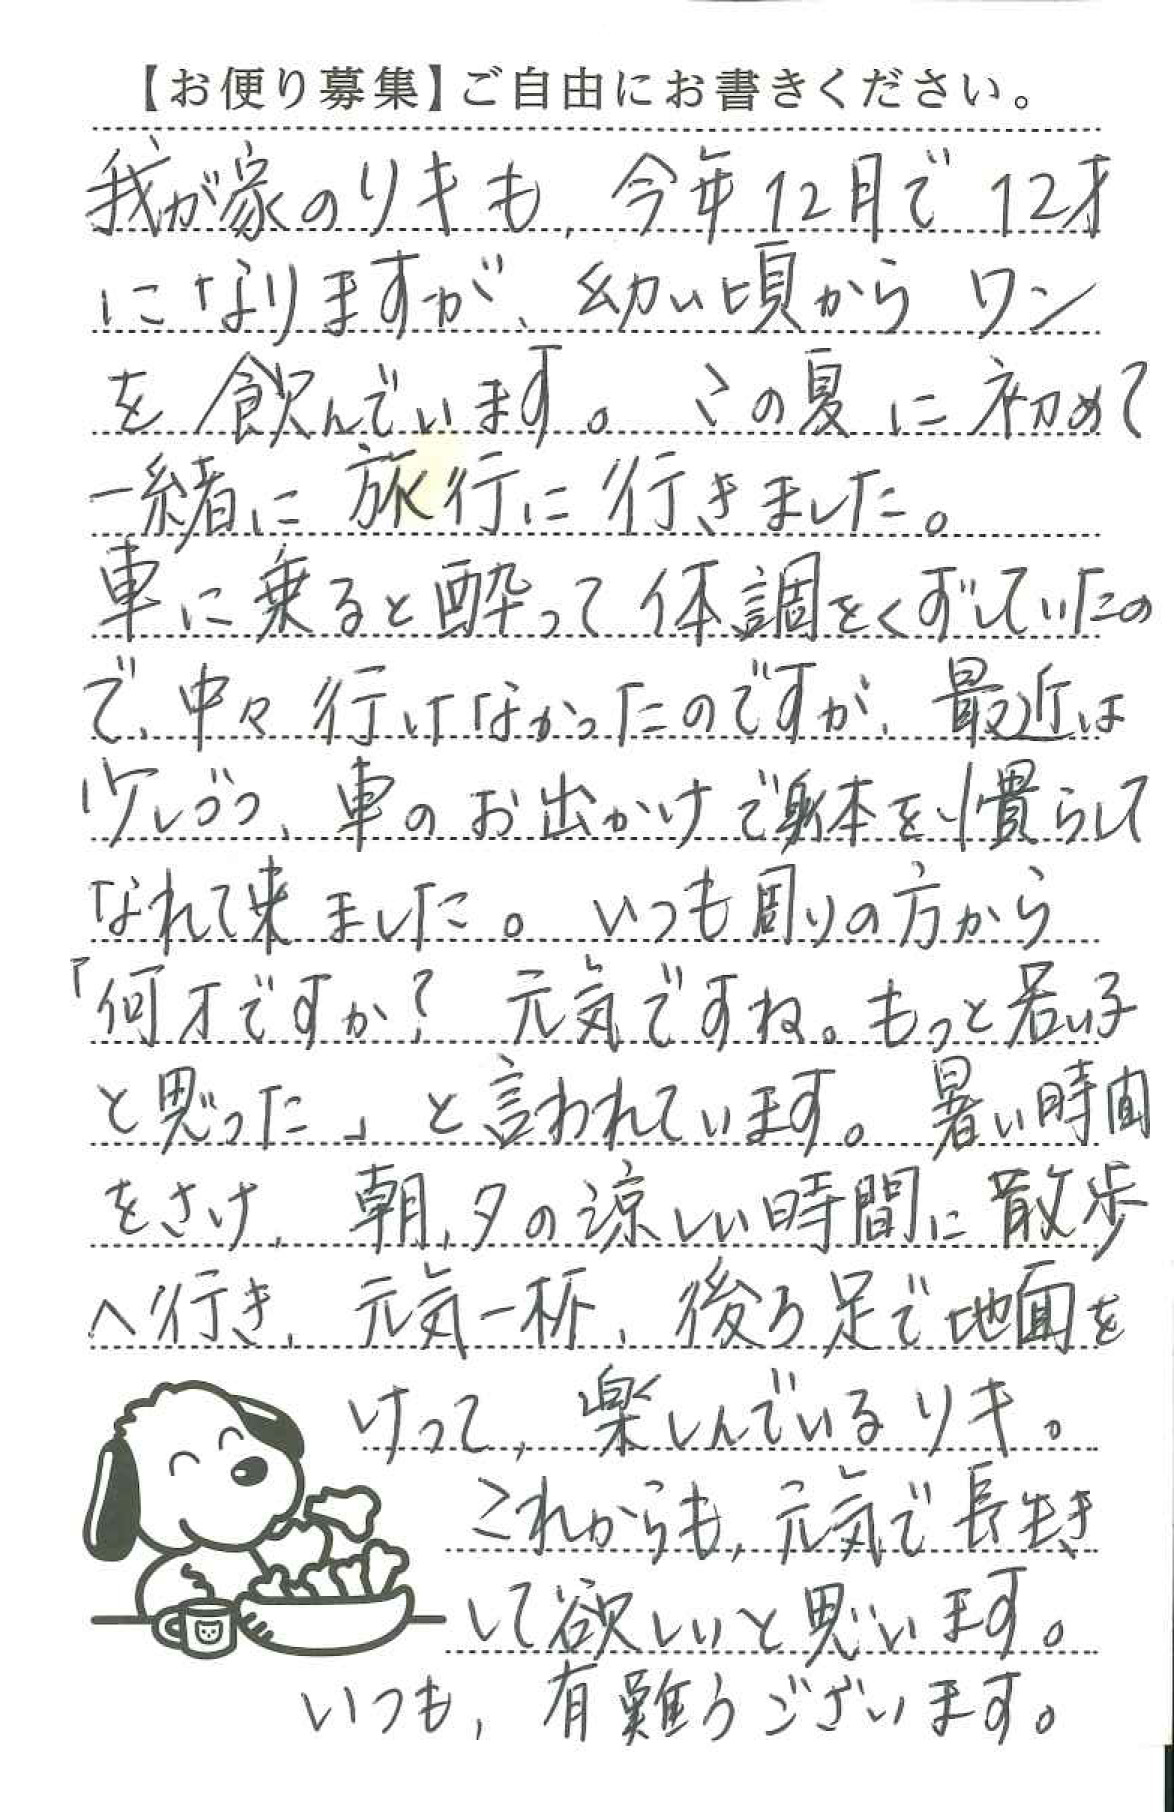 【お便り募集】ご自由にお書きください。
我が家のリキも、今年12月で12才
になりますが、幼い頃から ワン
を飲んでいます。この夏に初めて
一緒に旅行に行きました。
車に乗ると酔って体調をくずしていたの
で、中々行けなかったのですが、最近は
少しづつ、車のお出かけで身体を慣らして
なれて来ました。いつも周りの方から
「何才ですか? 元気ですね。もっと若い子
と思った」と言われています。暑い時間
をさけ、朝、夕の涼しい時間に散歩
へ行き、元気一杯、後ろ足で地面を
けって、楽しんでいるリキ。
これからも、元気で長生き
して欲しいと思います。
いつも、有難うございます。